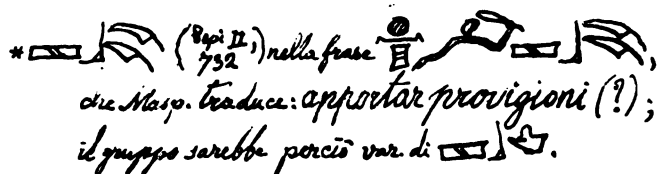 * (Pepi II, 732) nella frase ,
che Masp. traduce: apportar provigioni (?);
il gruppo sarebbe perciò var. di .